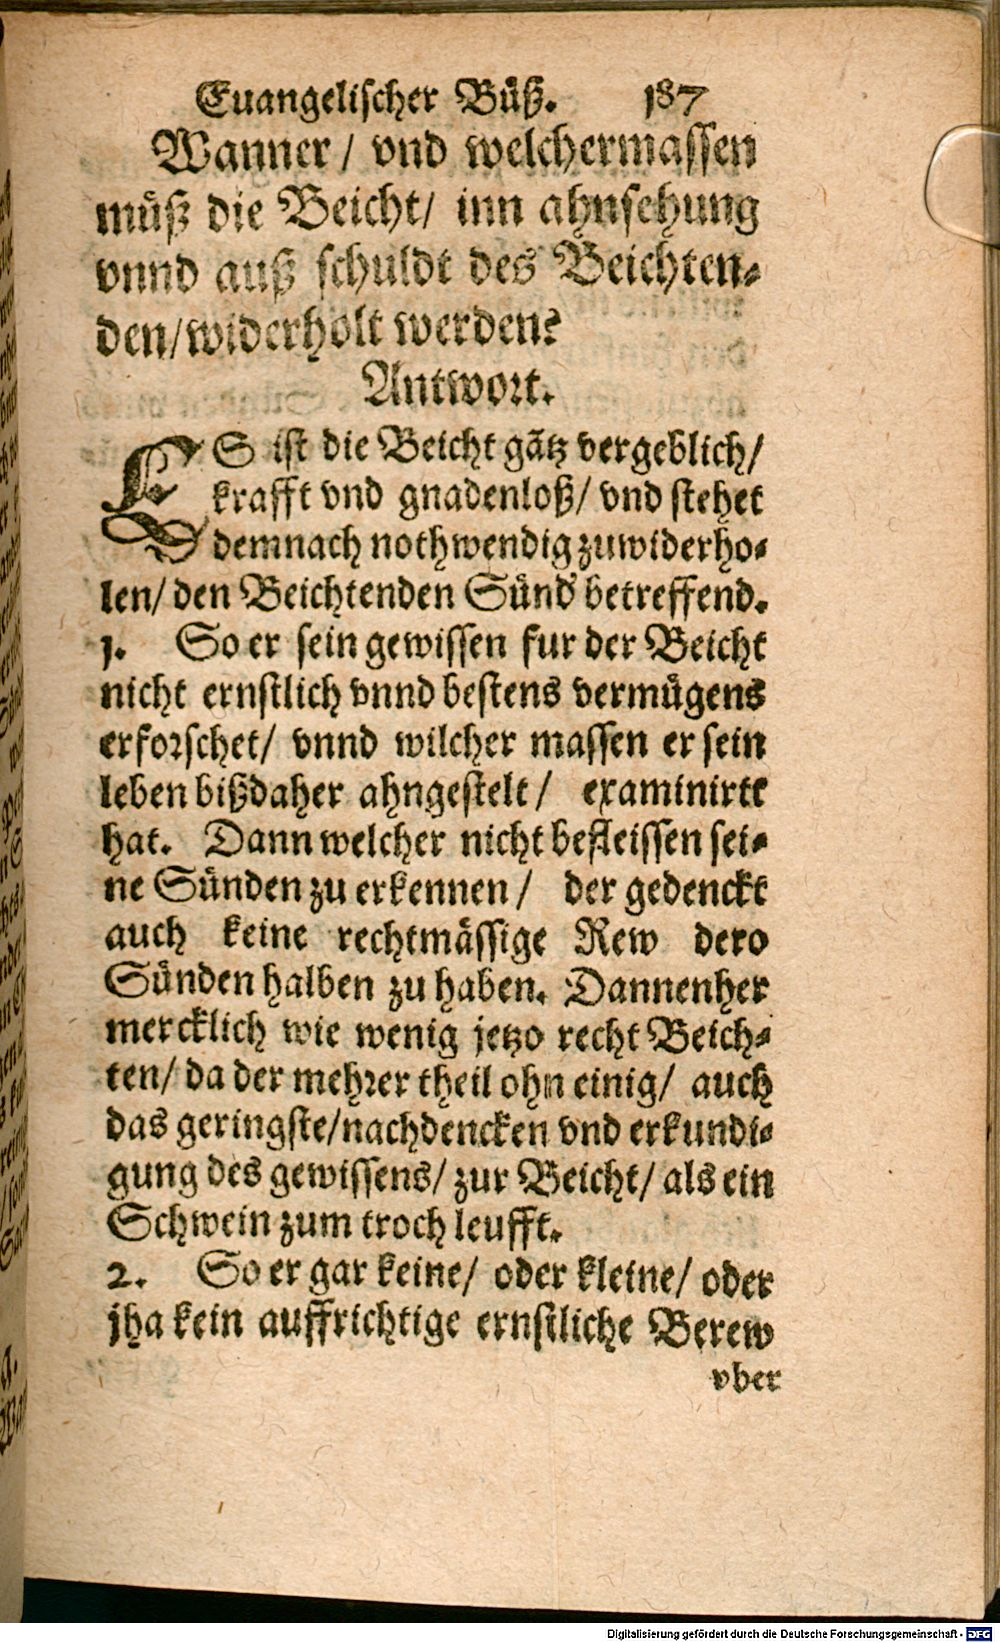 Euangelischer Büß. 187
Wanner / vnd welchermassen
müß die Beicht / inn ahnsehung
vnnd auß schuldt des Beichten-
den / widerholt werden?
Antwort.
ES ist die Beicht gãtz vergeblich /
krafft vnd gnadenloß / vnd stehet
demnach nothwendig zuwiderho-
len / den Beichtenden Sünd betreffend.
1. So er sein gewissen fur der Beicht
nicht ernstlich vnnd bestens vermügens
erforschet / vnnd wilcher massen er sein
leben bißdaher ahngestelt / examinirte
hat. Dann welcher nicht befleissen sei-
ne Sünden zu erkennen / der gedenckt
auch keine rechtmässige Rew dero
Sünden halben zu haben. Dannenher
mercklich wie wenig jetzo recht Beich-
ten / da der mehrer theil ohn einig / auch
das geringste / nachdencken vnd erkundi-
gung des gewissens / zur Beicht / als ein
Schwein zum troch leufft.
2. So er gar keine / oder kleine / oder
jha kein auffrichtige ernstliche Berew
vber
Digitalisierung gefördert durch die Deutsche Forschungsgemeinschaft - DFG